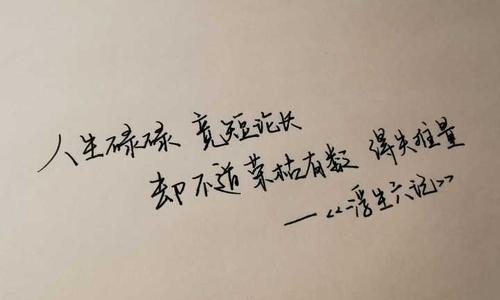 人生碌碌 竟短论长
却不道荣枯有数 得失难量
——<<浮生六记>>